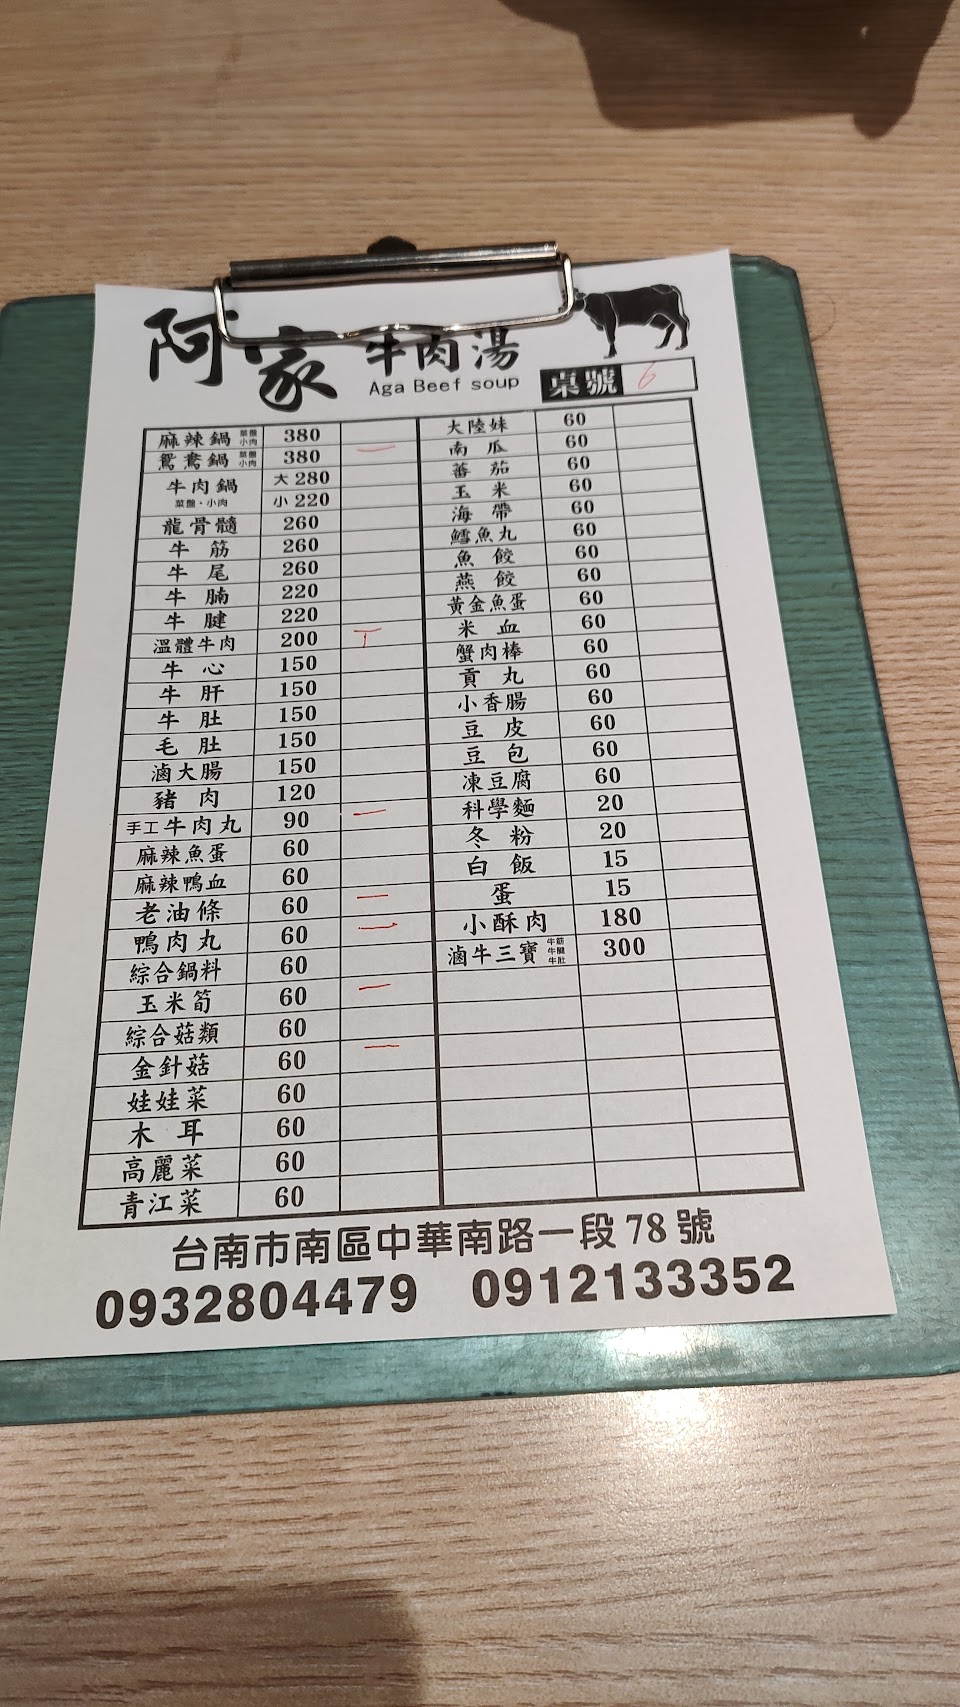 阿家 牛肉湯
Aga Beef soup
桌號 6
麻辣鍋 菜盤 小肉 380
鴛鴦鍋 菜盤 小肉 380 一
牛肉鍋 菜盤、小肉 大 280
小 220
龍骨髓 260
牛筋 260
牛尾 260
牛腩 220
牛腱 220
溫體牛肉 200 T
牛心 150
牛肝 150
牛肚 150
毛肚 150
滷大腸 150
豬肉 120
手工牛肉丸 90 一
麻辣魚蛋 60
麻辣鴨血 60
老油條 60 一
鴨肉丸 60 一
綜合鍋料 60
玉米筍 60 一
綜合菇類 60
金針菇 60 一
娃娃菜 60
木耳 60
高麗菜 60
青江菜 60
大陸妹 60
南瓜 60
蕃茄 60
玉米 60
海帶 60
鱈魚丸 60
魚餃 60
燕餃 60
黃金魚蛋 60
米血 60
蟹肉棒 60
貢丸 60
小香腸 60
豆皮 60
豆包 60
凍豆腐 60
科學麵 20
冬粉 20
白飯 15
蛋 15
小酥肉 180
滷牛三寶 牛筋 牛腱 牛肚 300
台南市南區中華南路一段 78 號
0932804479 0912133352